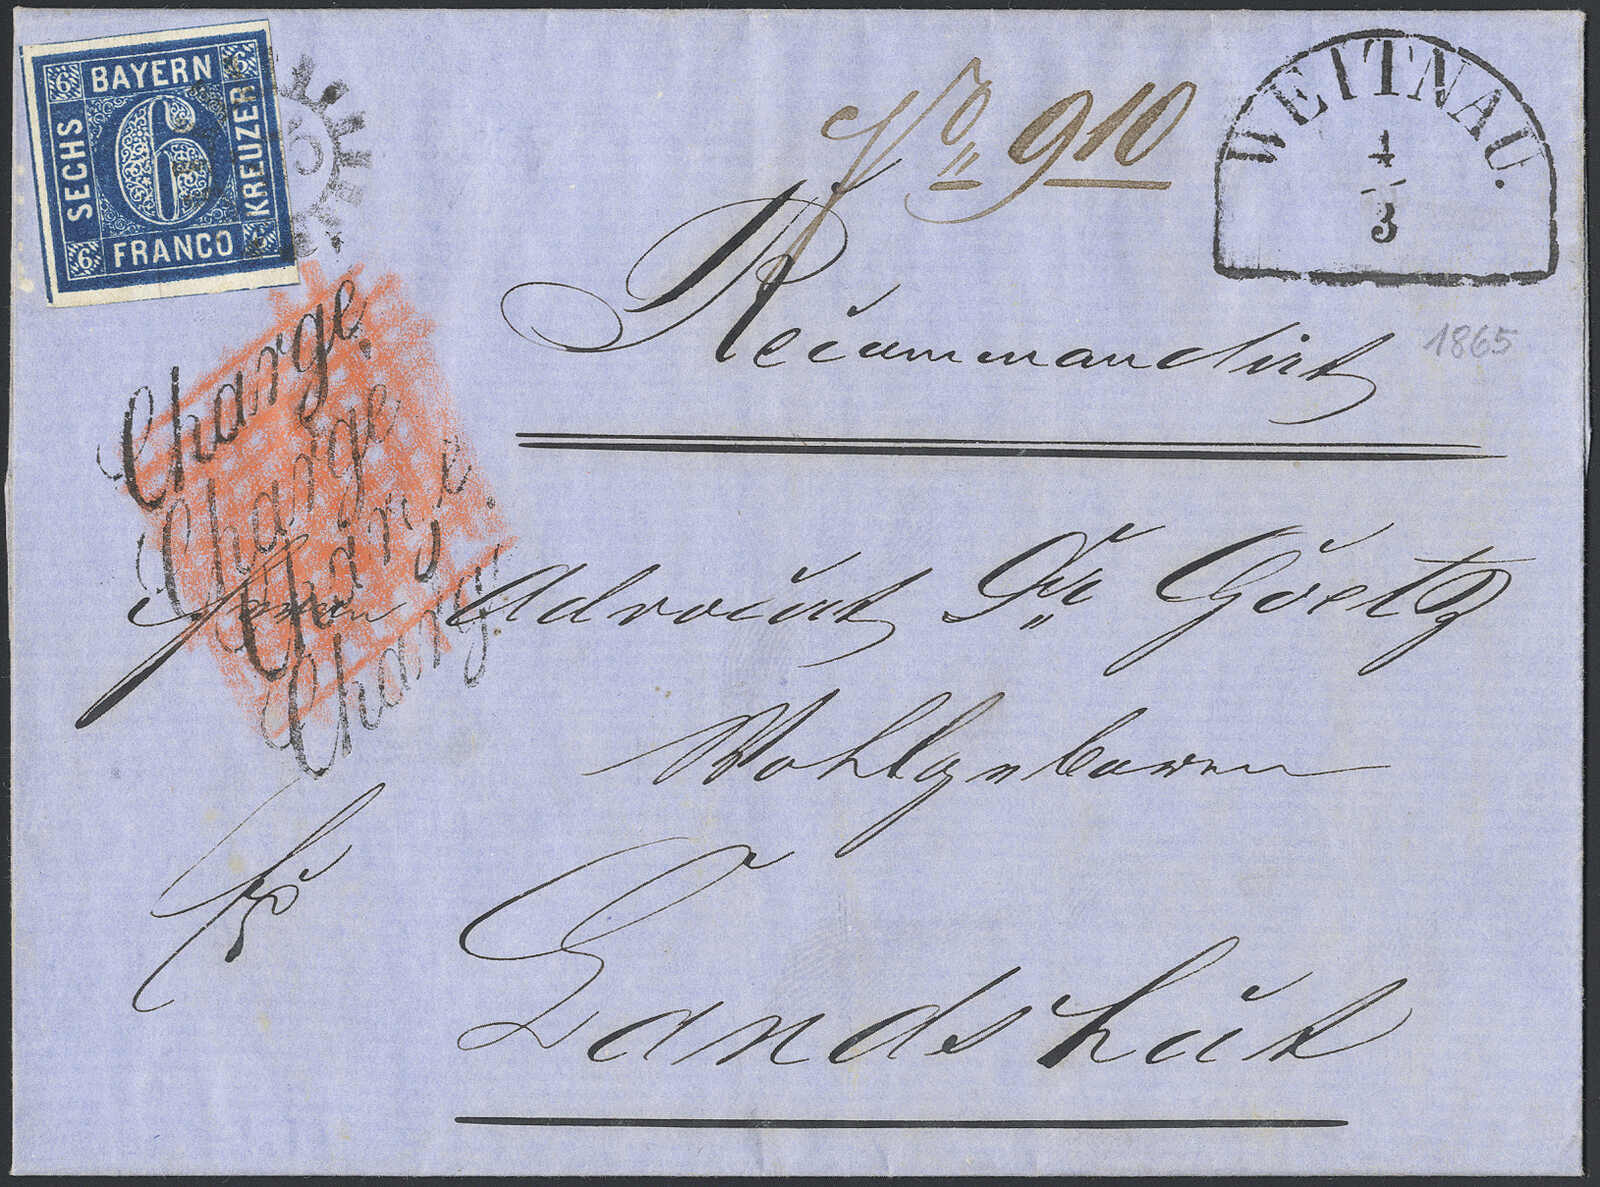 6 BAYERN 6
SECHS 6 KREUZER
6 FRANCO 6
No 910
WEITNAU.
4
3
Recummandirt
1865
Charge.
Charge
Charge.
Charg.
Herrn Advocat Dr Goetz
Wohlgeboren
fr
Landshut